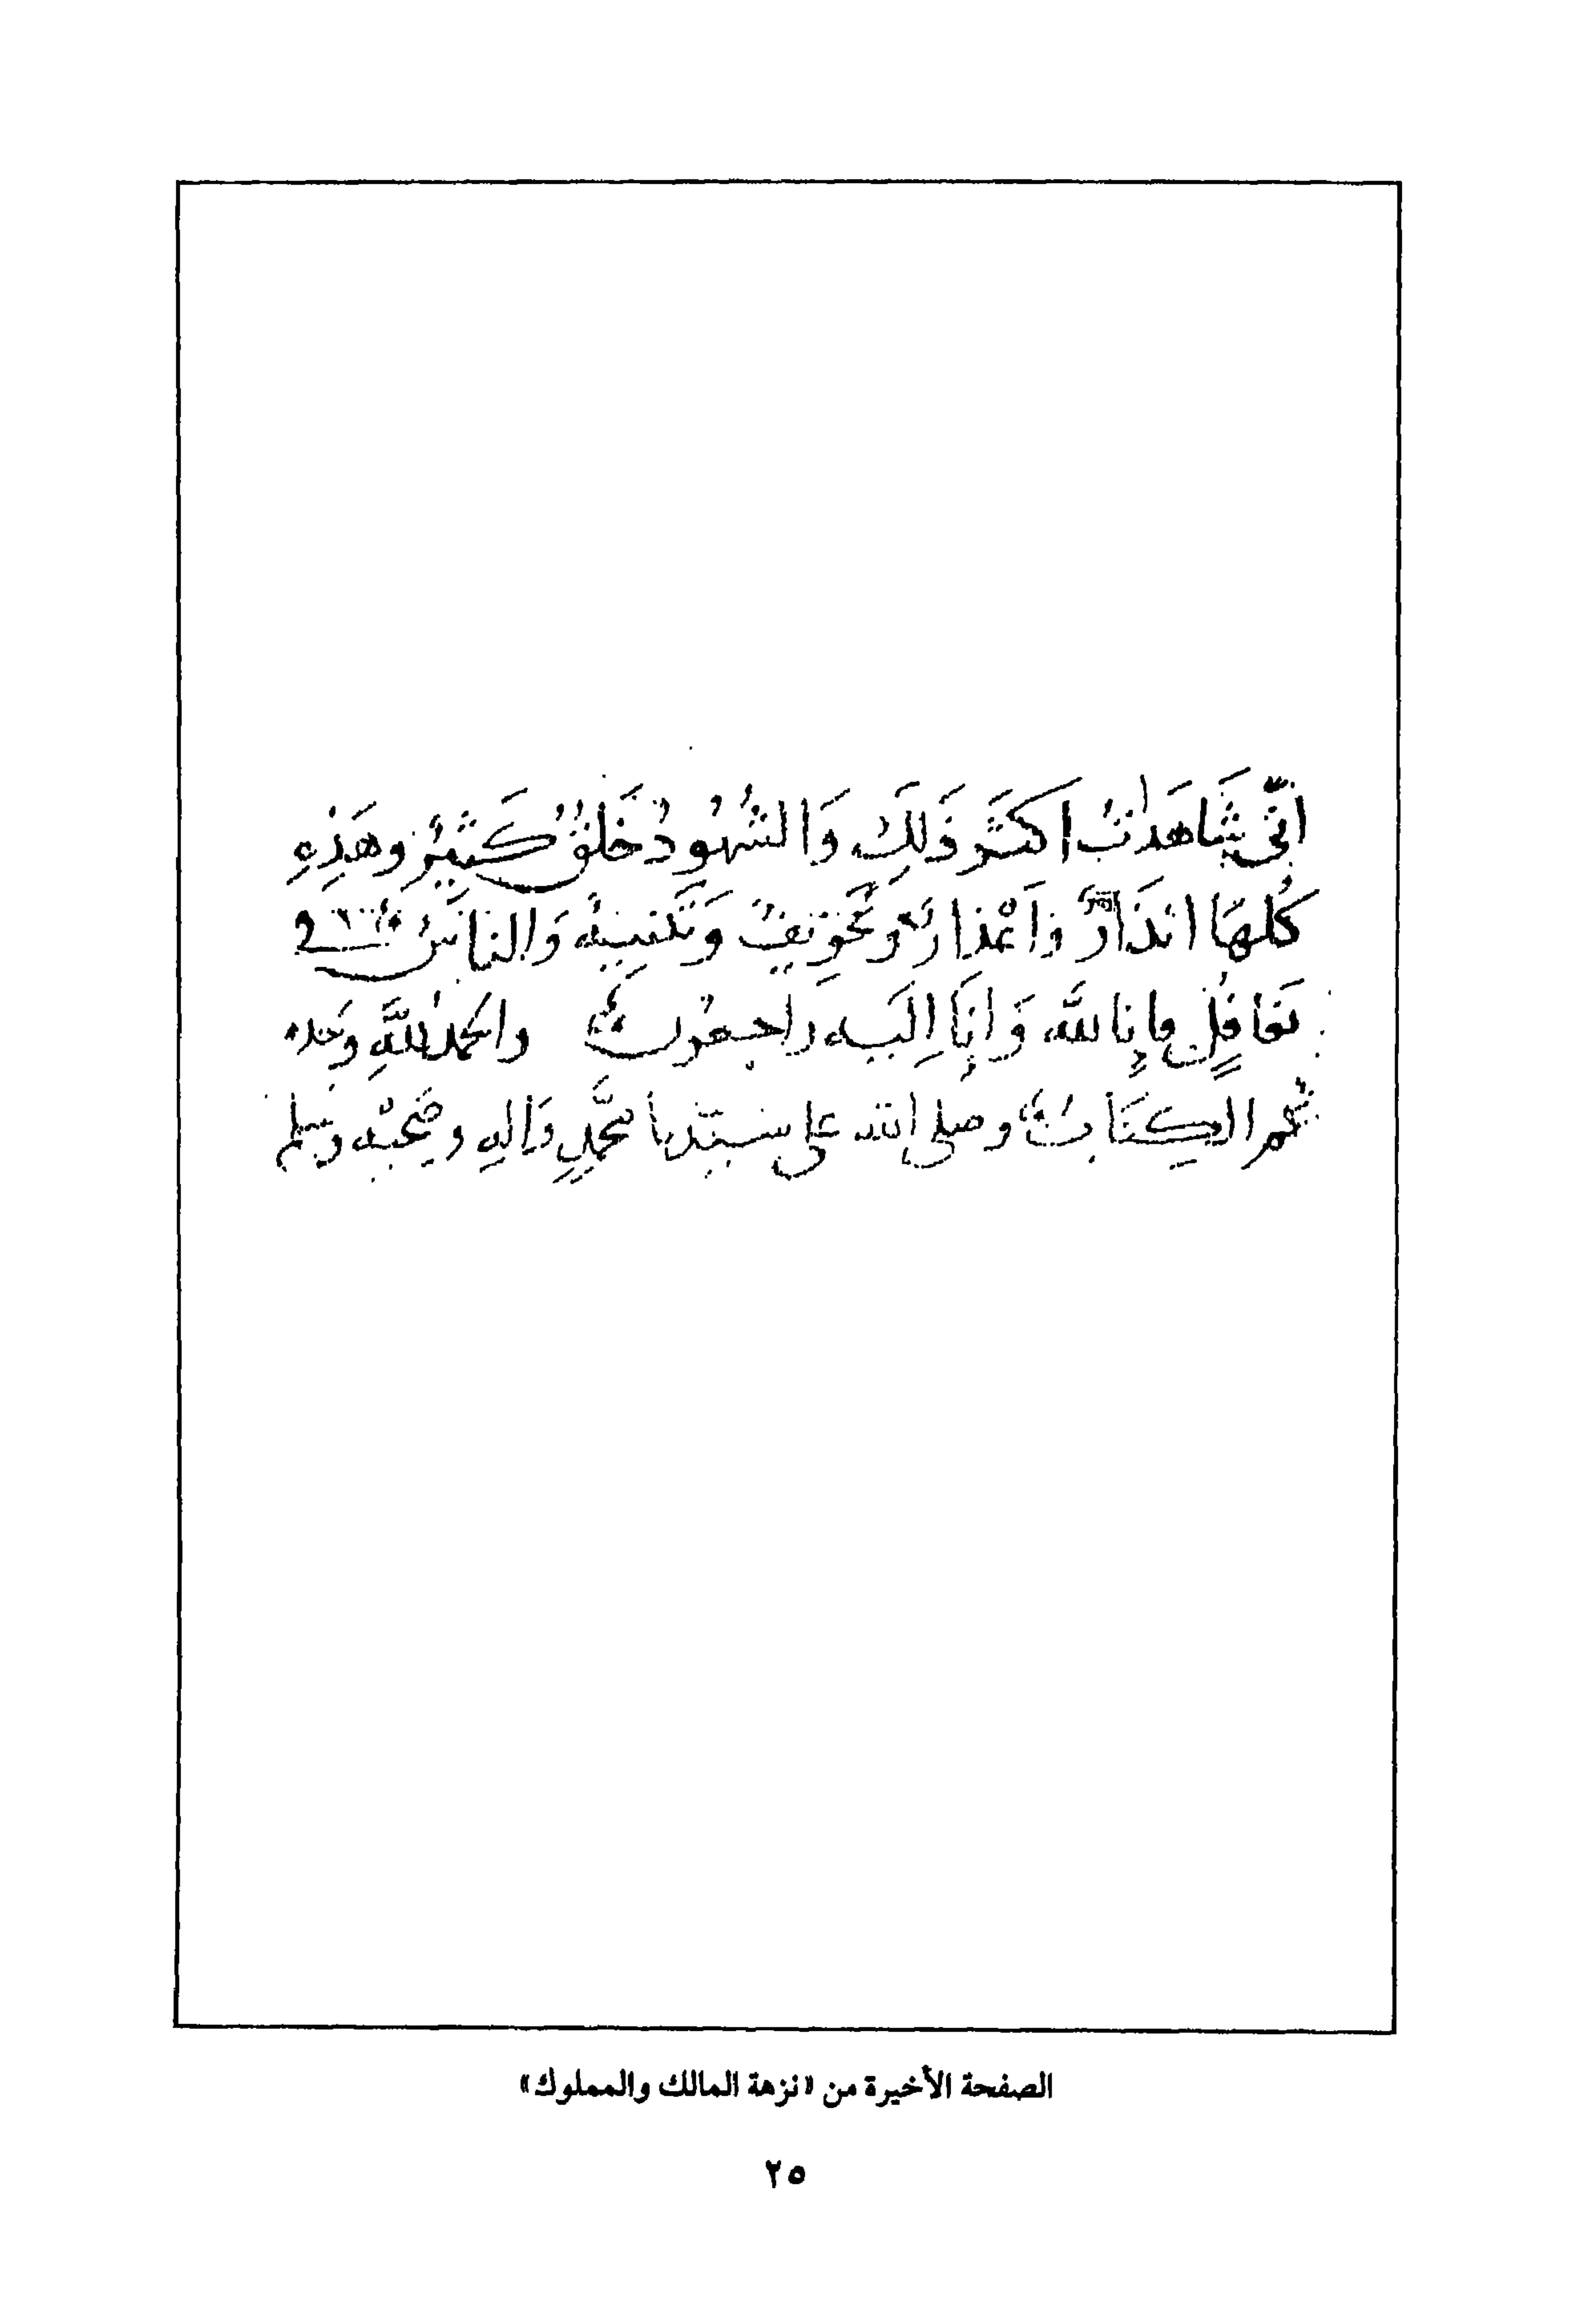 انّي شَاهَدتُ اكثَر ذَلِكَ وَالشُهُودُ خَلقٌ كَثيرٌ وهَذِهِ
كُلهَا انذَارٌ وَاعْذارٌ وتَخوِيفٌ وَتَنبيهٌ وَالناسُ في
تغَافلٍ فإنا لله وَانا إليَه رَاجعُون والحمدُ للَّهِ وَحده
تم الكِتَابُ وصلى الله على سيّدنا محمَّدٍ وَالهِ وصَحبْه وسَلم
الصفحة الأخيرة من «نزهة المالك والمملوك»
٢٥